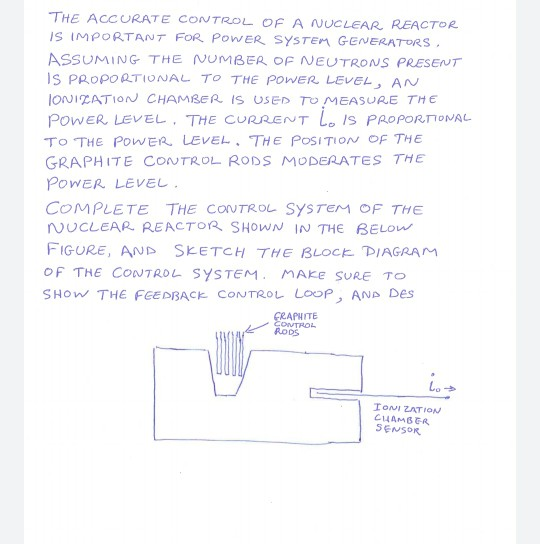 THE ACCURATE CONTROL OF A NUCLEAR REACTOR
IS IMPORTANT FOR POWER SYSTEM GENERATORS.
ASSUMING THE NUMBER OF NEUTRONS PRESENT
IS PROPORTIONAL TO THE POWER LEVEL, AN
IONIZATION CHAMBER IS USED TO MEASURE THE
POWER LEVEL. THE CURRENT i₀ IS PROPORTIONAL
TO THE POWER LEVEL. THE POSITION OF THE
GRAPHITE CONTROL RODS MODERATES THE
POWER LEVEL.
COMPLETE THE CONTROL SYSTEM OF THE
NUCLEAR REACTOR SHOWN IN THE BELOW
FIGURE, AND SKETCH THE BLOCK DIAGRAM
OF THE CONTROL SYSTEM. MAKE SURE TO
SHOW THE FEEDBACK CONTROL LOOP, AND DES
GRAPHITE
CONTROL
RODS
i₀ →
IONIZATION
CHAMBER
SENSOR